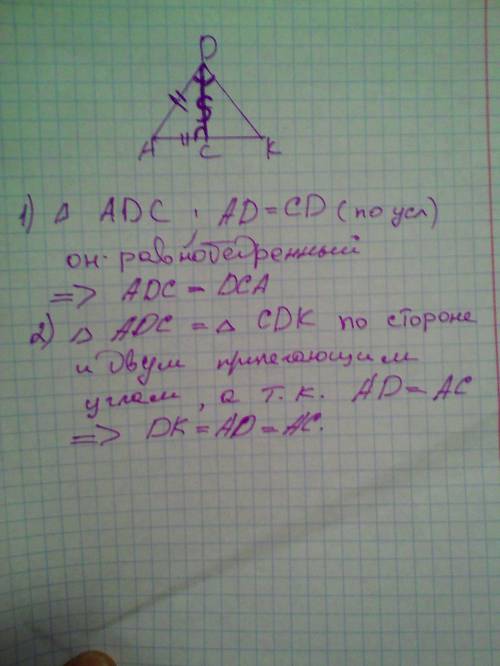 D
A C K
1) Δ ADC, AD = CD (по усл)
он равнобедренный
=> ADC = DCA
2) Δ ADC = Δ CDK по стороне
и двум прилегающим
углам, а т.к. AD = AC
=> DK = AD = AC.